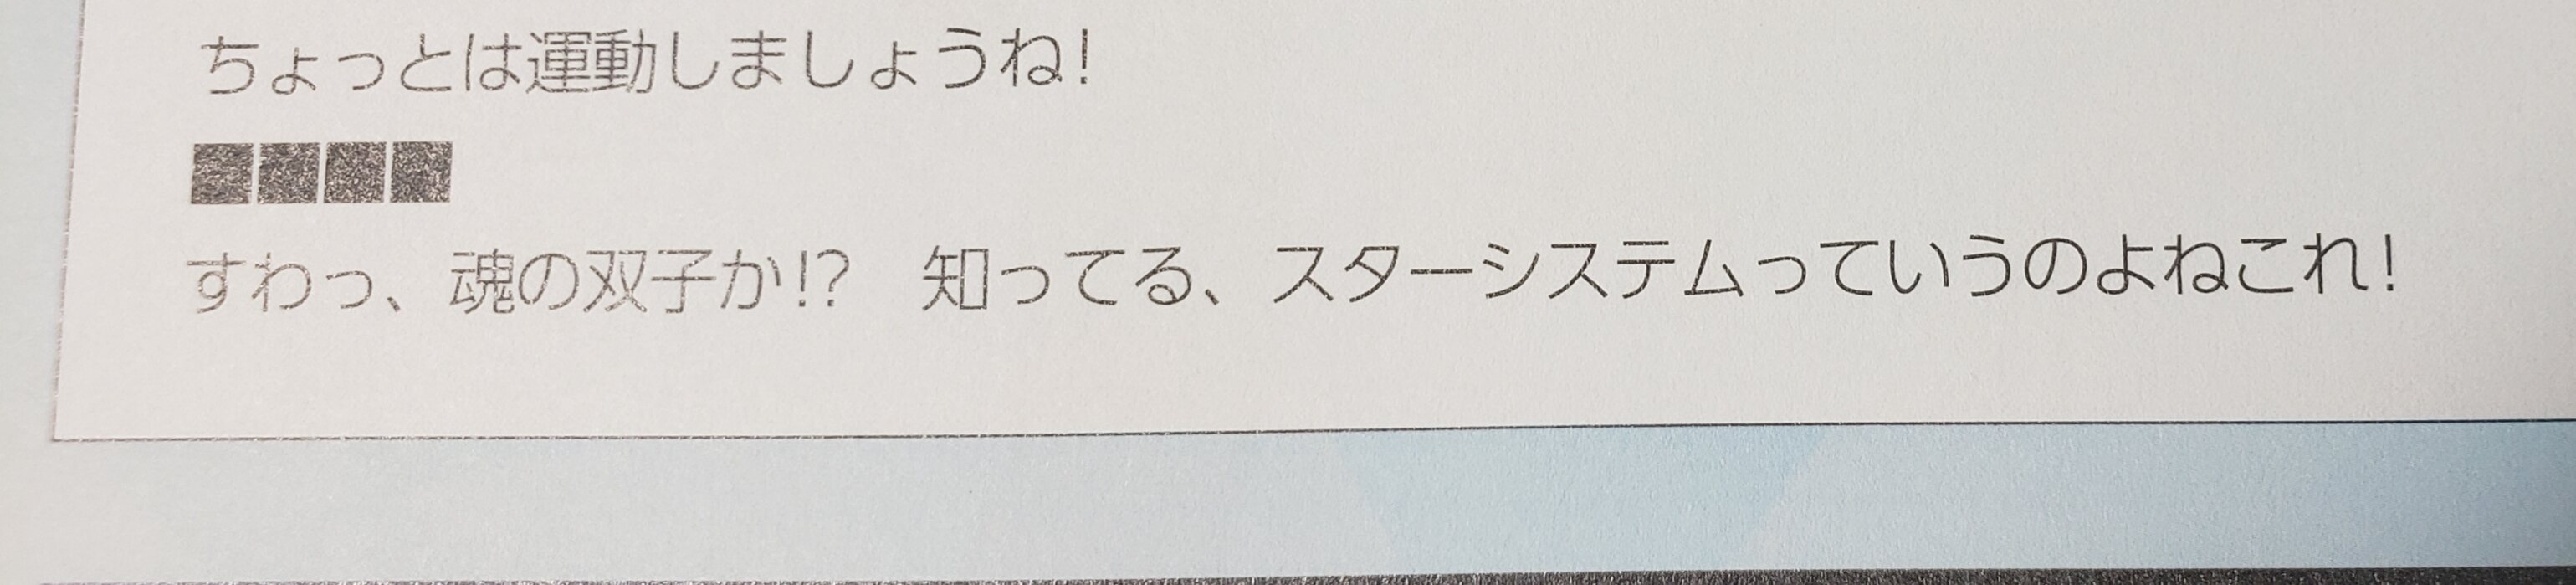 ちょっとは運動しましょうね!
■■■■
すわっ、魂の双子か!?　知ってる、スターシステムっていうのよねこれ!